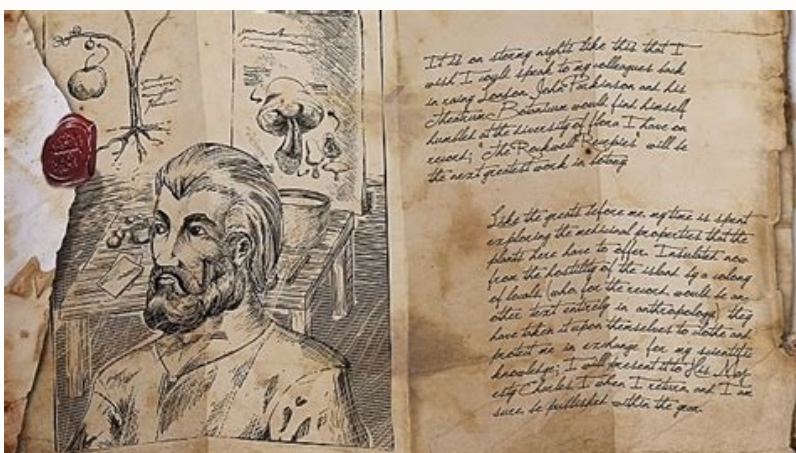 It is on stormy nights like this that I
wish I could speak to my colleagues back
in rainy London. John Parkinson and his
Theatrum Botanicum would find himself
humbled at the diversity of flora I have on
record; "The Rockwell Recipies" will be
the next greatest work in botany
Like the greats before me, my time is spent
exploring the medicinal properties that the
plants here have to offer. Insulated now
from the hostility of the island by a colony
of locals (who for the record would be an-
other text entirely in anthropology) they
have taken it upon themselves to clothe and
protect me in exchange for my scientific
knowledge; I will present it to His Maj-
esty Charles I when I return, and I am
sure, be published within the year.